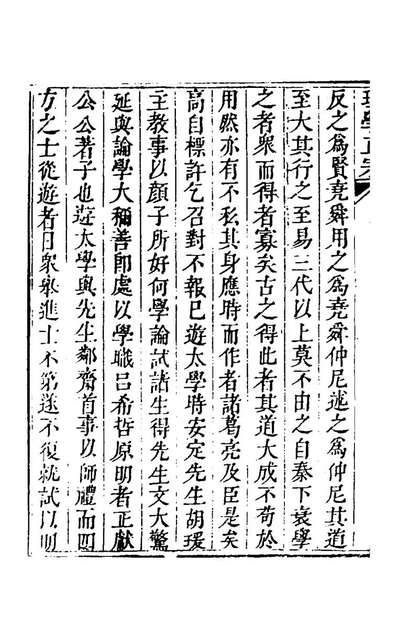 反之爲賢堯舜用之爲堯舜仲尼述之爲仲尼其道
至大其行之至易三代以上莫不由之自秦下衰學
之者衆而得者寡矣古之得此者其道大成不苟於
用然亦有不私其身應時而作者諸葛亮及臣是矣
高自標許乞召對不報已遊太學時安定先生胡瑗
主教事以顔子所好何學論試諸生得先生文大驚
延與論學大稱善即處以學職吕希哲原明者正獻
公公著子也遊太學與先生鄰齋首事以師禮而四
方之士從遊者日衆舉進士不第遂不復就試以明